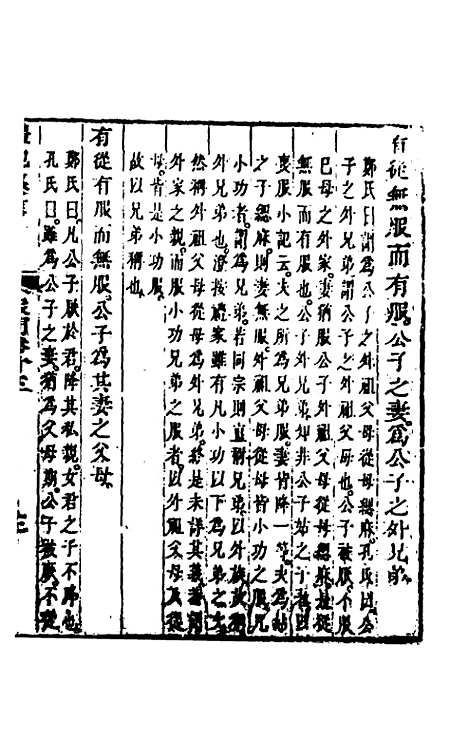 有從無服而有服公子之妻為公子之外兄弟
鄭氏曰謂為公子之外祖父母從母緦麻孔氏曰公
子之外兄弟謂公子外祖父母也公子被厭不服
已母之外家妻猶服公子外祖父母從母緦麻是從
無服而有服也公子外兄弟知非公子姑之子者以
喪服小記云夫之所為兄弟服妻皆降一等夫為姑
之子緦麻則妻無服外祖父母從母皆小功之服凡
小功者謂為兄弟若同宗則直稱兄弟以外族故稱
外兄弟也澄按禮家雖有凡小功以下為兄弟之文
然稱外祖父母從母為外兄弟終是未詳其義
外家之親而服小功兄弟之服者以外祖父母及從
母皆是小功服
故以兄弟稱也
有從有服而無服公子為其妻之父母
鄭氏曰凡公子厭於君降其私親女君之子不降也
孔氏曰雖為公子之妻猶為父母期公子被厭不從